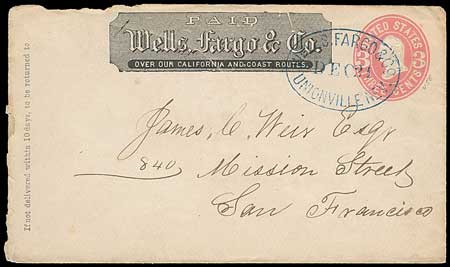 PAID
Wells, Fargo & Co.
OVER OUR CALIFORNIA AND COAST ROUTES.
FARGO & CO
DEC 21
UNIONVILLE
UNITED STATES
CENTS
James, C. Weir Esqr
840 Mission Street
San Francisco
If not delivered within 10 days, to be returned to